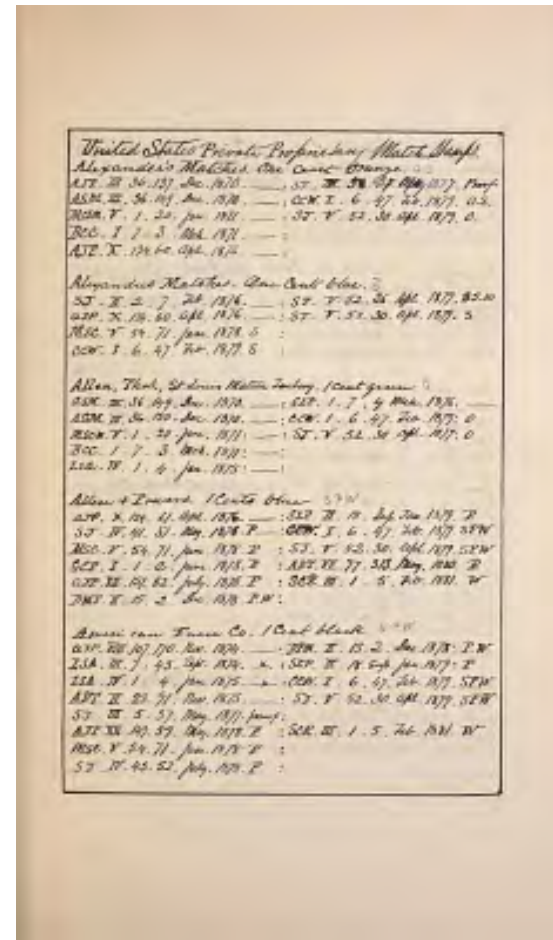 United States Private Proprietary Match Stamps.
Alexander's Matches One Cent Orange.
AJP. III 36. 137. Dec. 1870. — : SJ. Apl 1877. Proof
ASM. IV. 36. 149. Dec. 1870. — : CCW. I. 6. 47. Feb. 1879. O.S.
MCSM. V. 1. 20. Jan. 1871 — : SJ. V. 52. 30. Apl. 1879. O.
BCC. I 7. 3. Mch. 1871. — :
AJP. X. 124. 60. Apl. 1876. — :
Alexanders Matches. One Cent blue.
SJ. II 2. 7. Feb. 1876. — : SJ. V. 52. Apl. 1877.
AJP. X. 124. 60. Apl. 1876. — : SJ. V. 52. 30. Apl. 1879. S
MSC. V 54. 71. Jan. 1878. S :
CCW. I. 6. 47 Feb. 1879. S :
Allen, Thos, St Louis Match Factory. 1 Cent green
ASM. IV. 36. 149. Dec. 1870. — : I. 7. Mch. 1876. —
ASM. IV. 36. 150. Dec. 1870. — : CCW. I. 6. 47. Feb. 1879. O
MSCM. V. 1. 20. Jan. 1871 — : SJ. V. 52. 30. Apl. 1879. O
BCC. I 7. 3. Mch. 1871. — :
LSA. IV. 1. 4. Jan. 1875. — :
Allen & Powers 1 Cent blue S P W
AJP. X. 124. 61. Apl. 1876. — : SCP. II 18. Sup Jan 1879. P
SJ. IV. 41. 37. May. 1878. P. : CCW. I. 6. 47. Feb. 1879. SPW
MSC. V. 54. 71. Jan. 1878. P : SJ. V. 52. 30. Apl. 1879. SPW
I. 1. 2. Jan. 1878. P : VI. 77. May. 1880. P
AJP. XII. 149. 52. July. 1878. P : SCR. III. 1. 5. Feb. 1881. W
II. 15. 2. Dec. 1878. P.W :
American Fusee Co. 1 Cent black S P W
AJP. VIII. 107. 170. Nov. 1874. — : II. 15. 2. Dec. 1878. P.W
LSA. III. 7. 43. 1874. : SCP. II 18 Sup Jan 1879. P
LSA. IV. 1. 4. Jan. 1875. : CCW. I. 6. 47. Feb. 1879. SPW
II 23. 71. Nov. 1875. — : SJ. V 52. 30. Apl. 1879. SPW
SJ. III 5. 37. May. 1877. proof :
AJP. XII. 147. 39. May. 1878. P : SCR. III. 1. 5. Feb. 1881 W
MSC. V 54. 71. Jan. 1878 P :
SJ. IV. 43. 52. July. 1878. P :